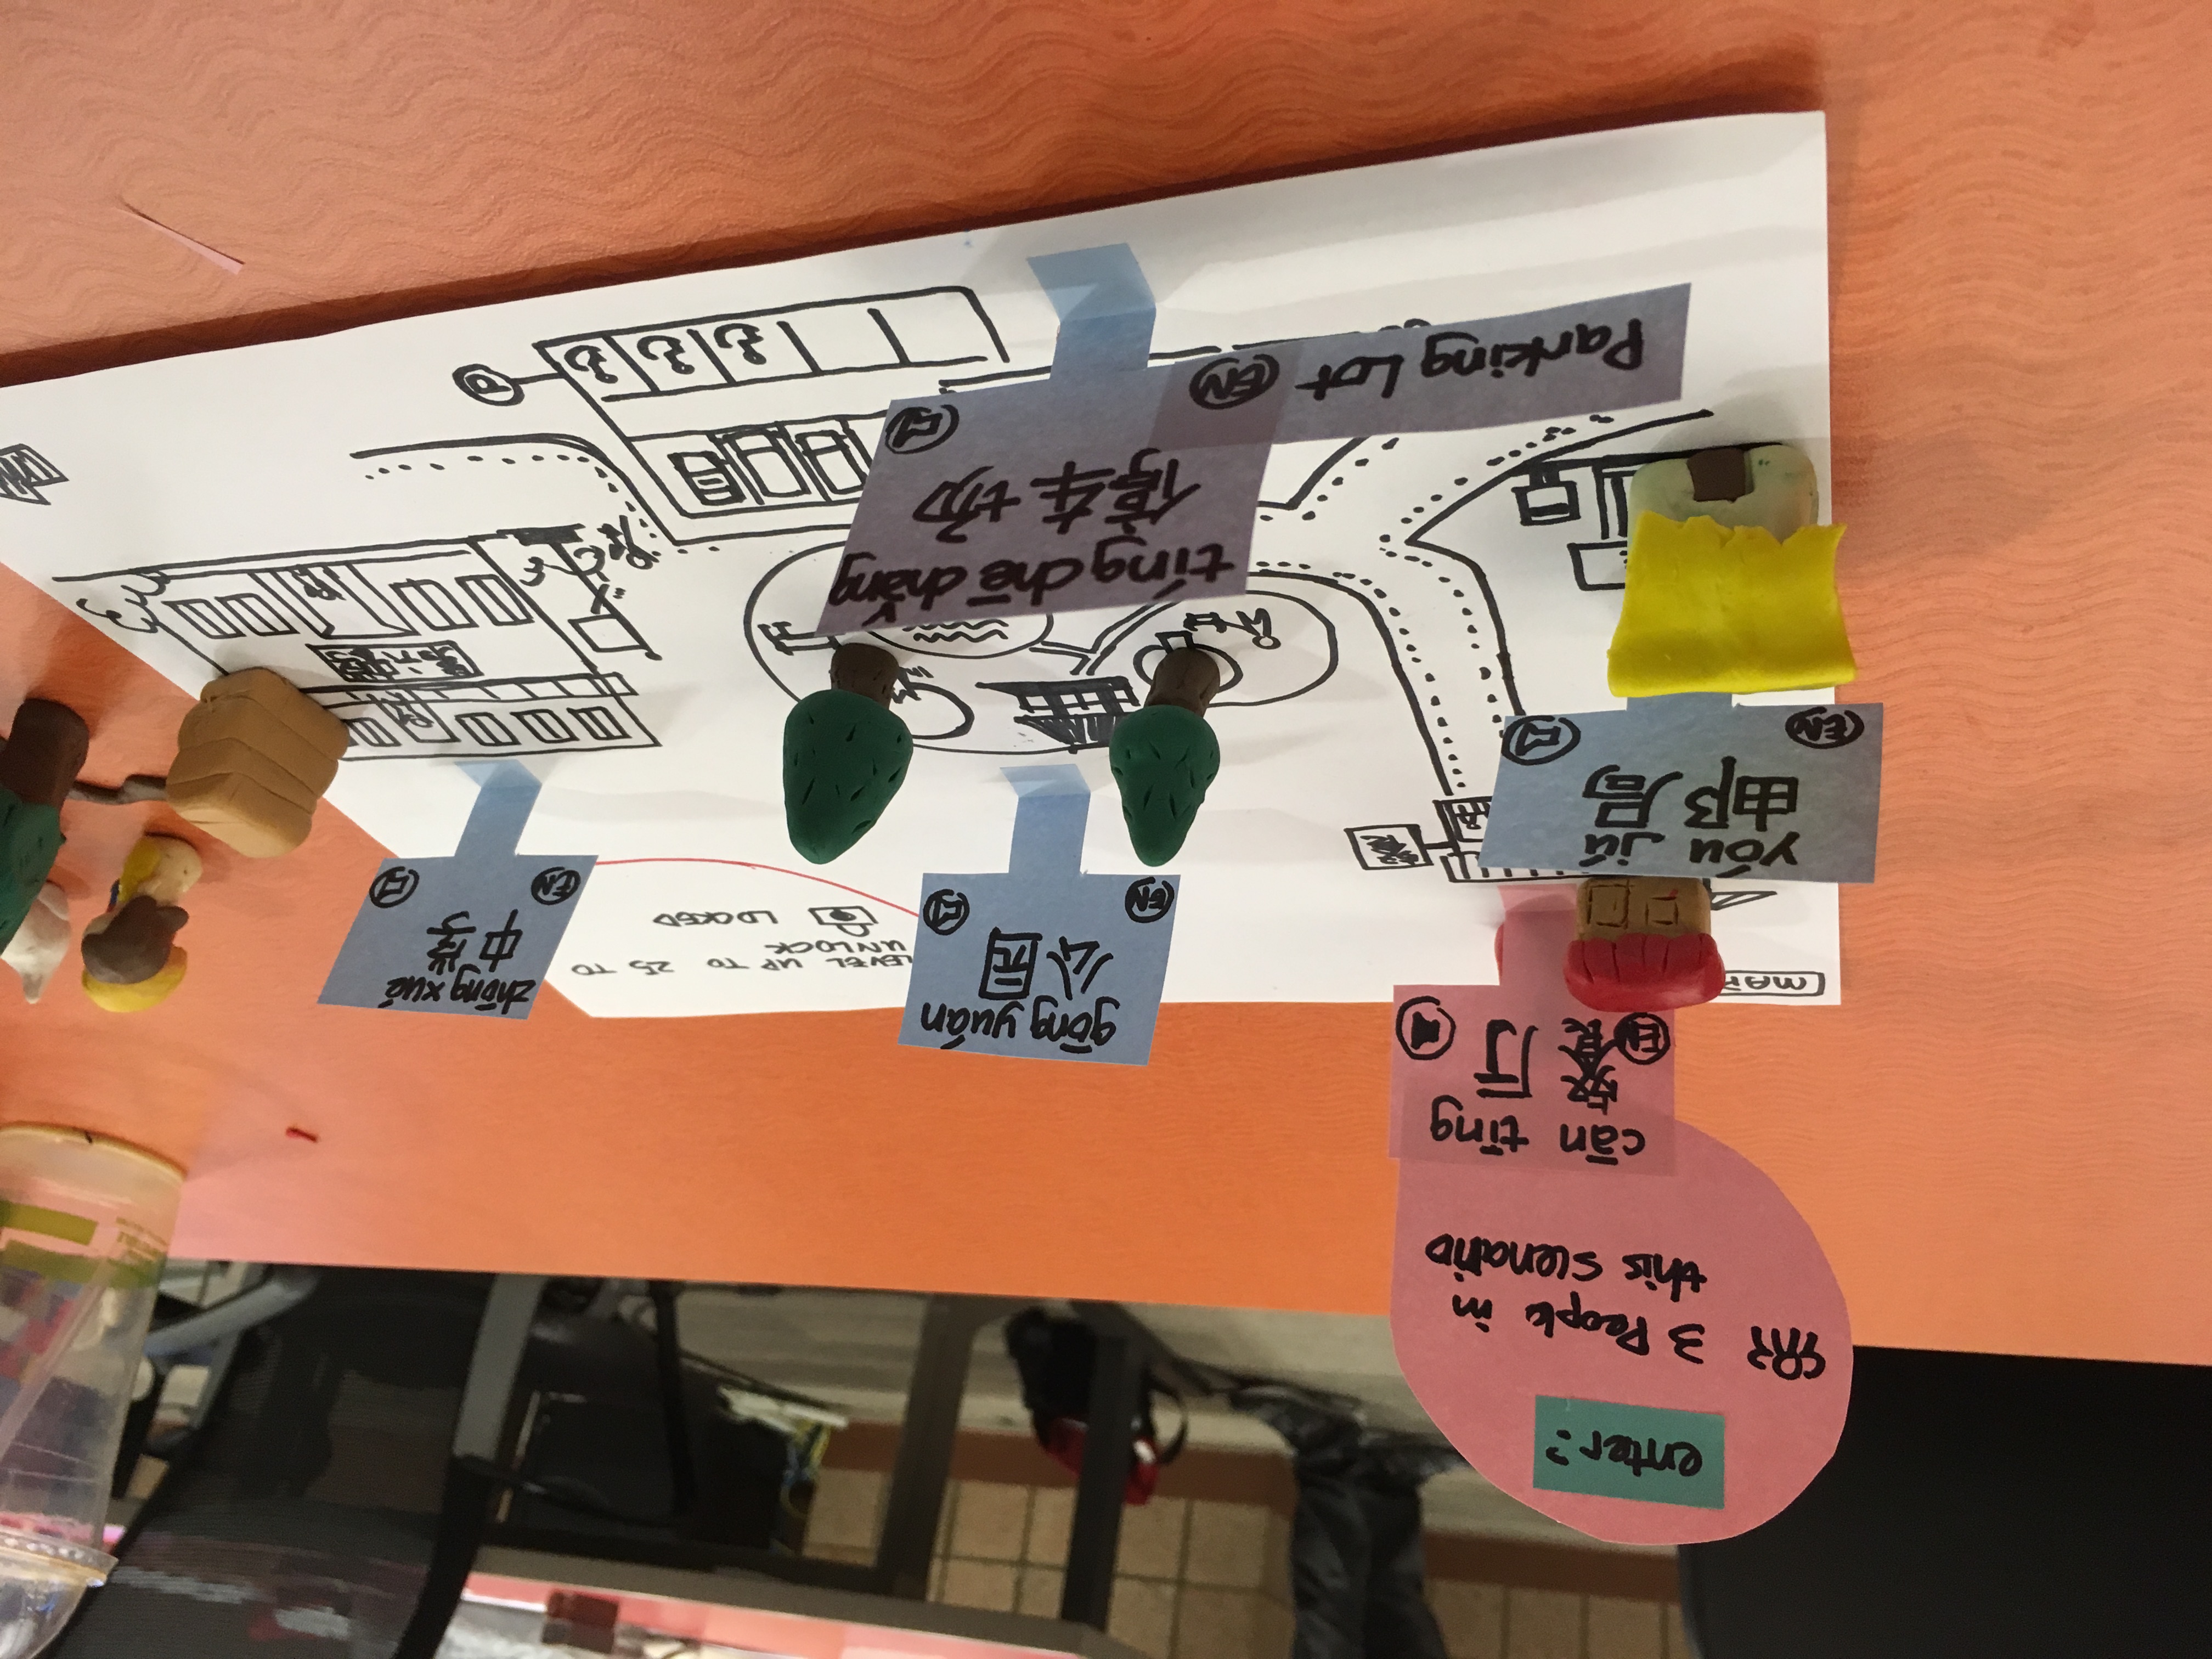 enter?
3 People in
this scenario
cān tīng
餐厅
EN
MAP
餐
gōng yuán
公园
EN
LEVEL UP TO 25 TO
UNLOCK
LOCKED
zhōng xué
中学
EN
yóu jú
邮局
EN
tíng chē chǎng
停车场
Parking Lot EN